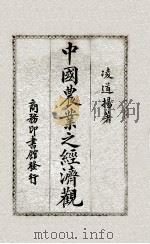 凌道揚著
中國農業之經濟觀
商務印書館發行
www.mtoou.info